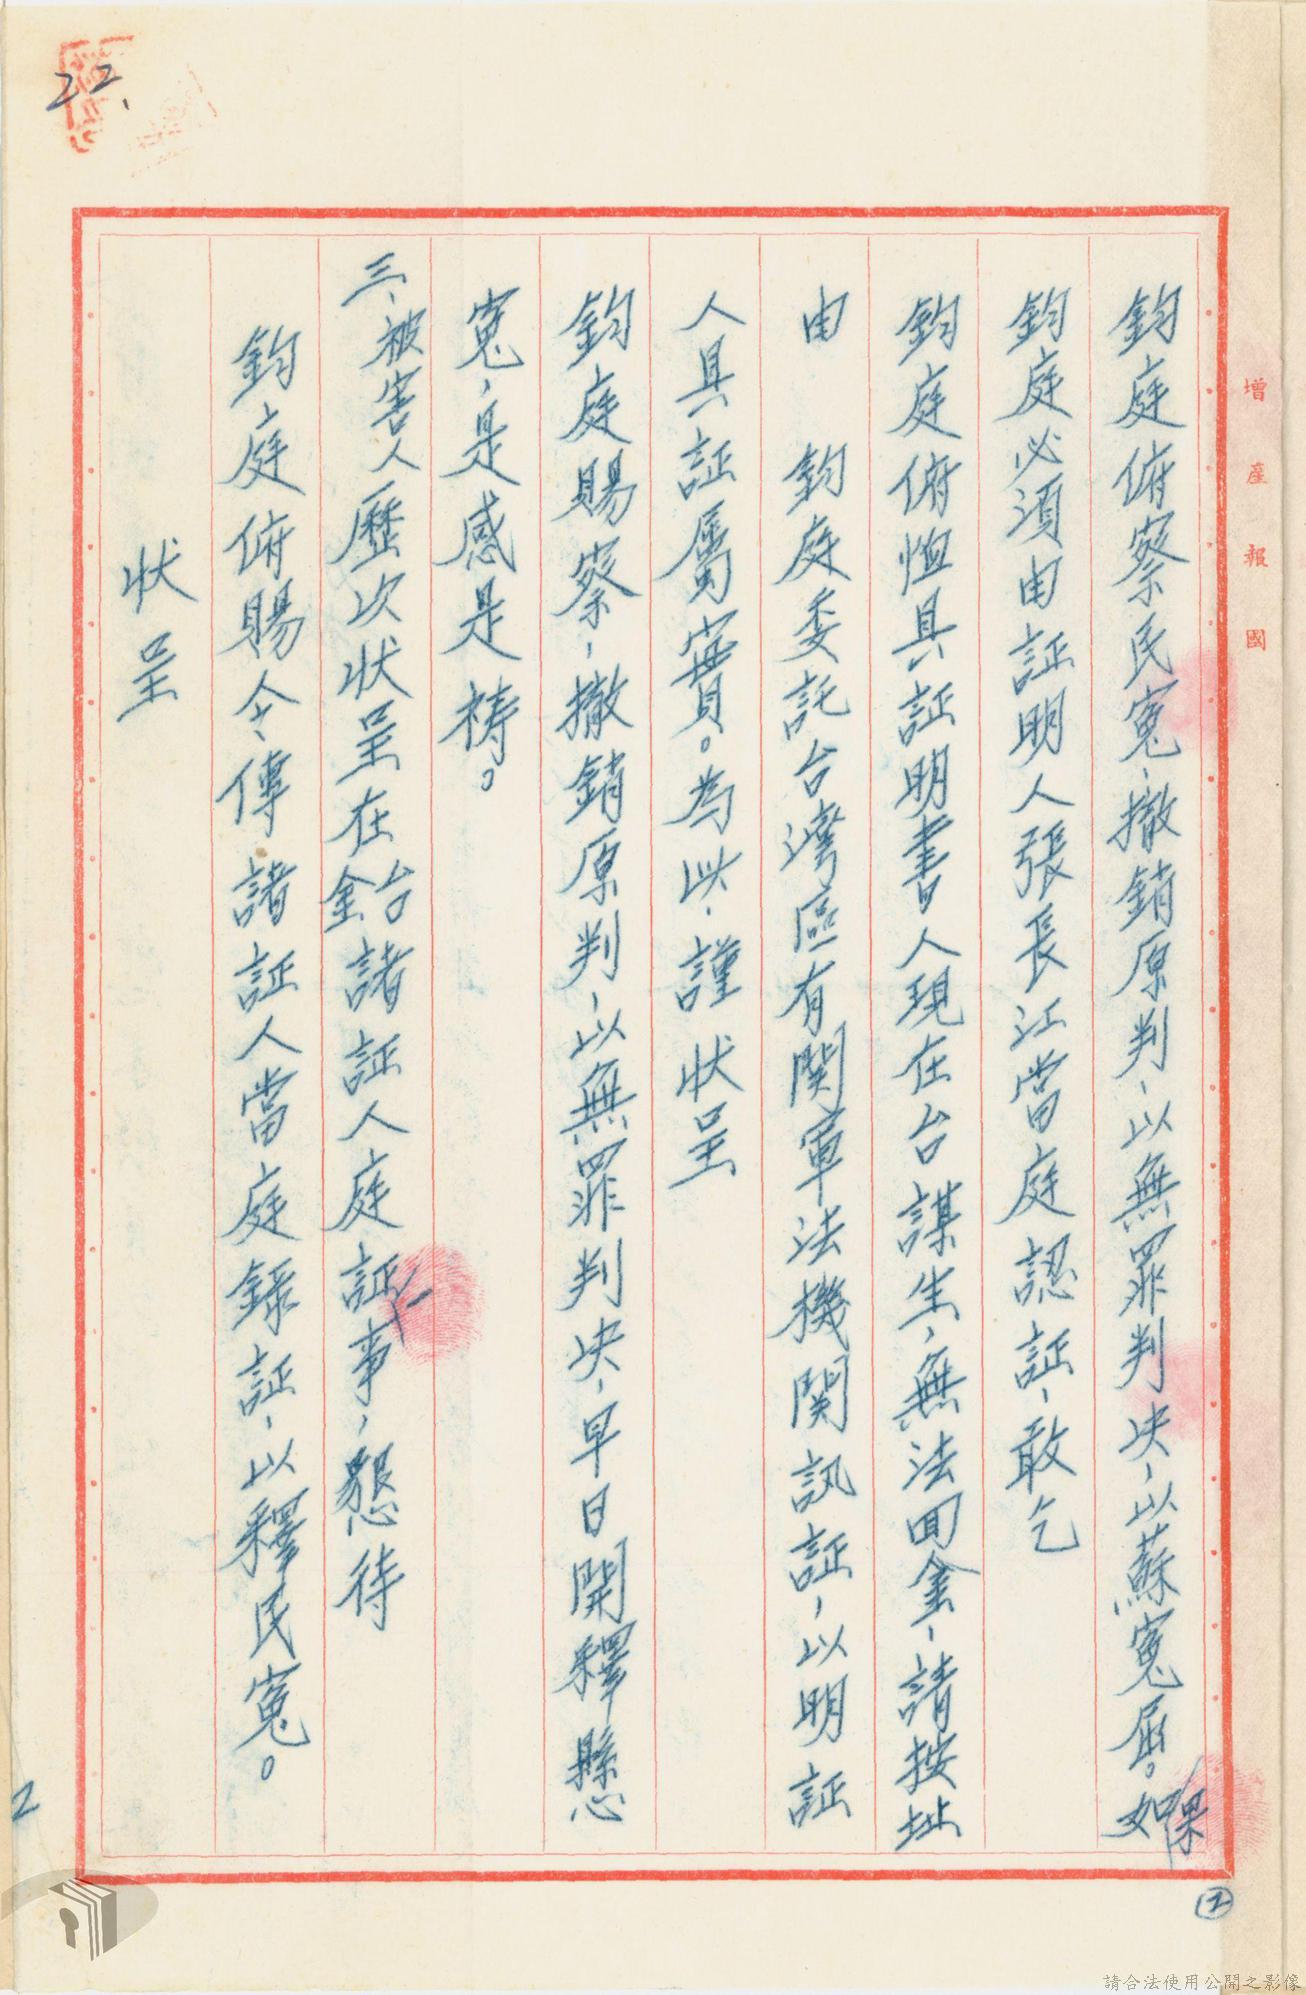 22.
增產報國
鈞庭俯察民寃、撤銷原判、以無罪判决、以蘇寃屈。如果
鈞庭必須由証明人張長江當庭認証、敢乞
鈞庭俯恤具証明書人現在台謀生、無法回金、請按址
由　鈞庭委託台灣區有関軍法機関訊証、以明証
人具証屬實。為此、謹　狀呈
鈞庭賜察、撤銷原判、以無罪判决、早日開釋懸
寃、是感是禱。
三、被害人歷次狀呈在台金諸証人庭証事、懇待
鈞庭俯賜令傳諸証人當庭錄証、以釋民寃。
狀呈
2
②
請合法使用公開之影像